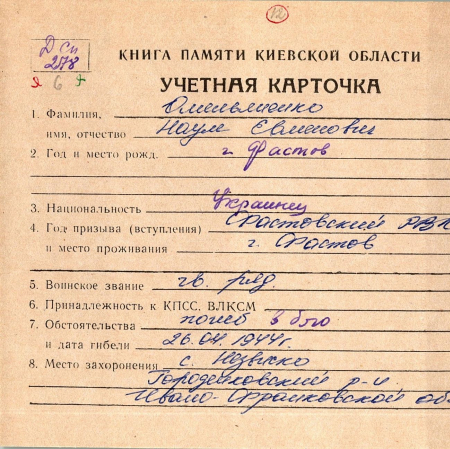 12
Д Сп
278
я 6 я
КНИГА ПАМЯТИ КИЕВСКОЙ ОБЛАСТИ
УЧЕТНАЯ КАРТОЧКА
1. Фамилия, Омельяненко
имя, отчество Наум Евменович
2. Год и место рожд. г. Фастов
3. Национальность Украинец
4. Год призыва (вступления) Фастовский РВК
и место проживания г. Фастов
5. Воинское звание гв. ряд.
6. Принадлежность к КПСС, ВЛКСМ
7. Обстоятельства погиб в бою
и дата гибели 26.04.1944г.
8. Место захоронения с. Незвиско
Городенковский р-н
Ивано-Франковской об